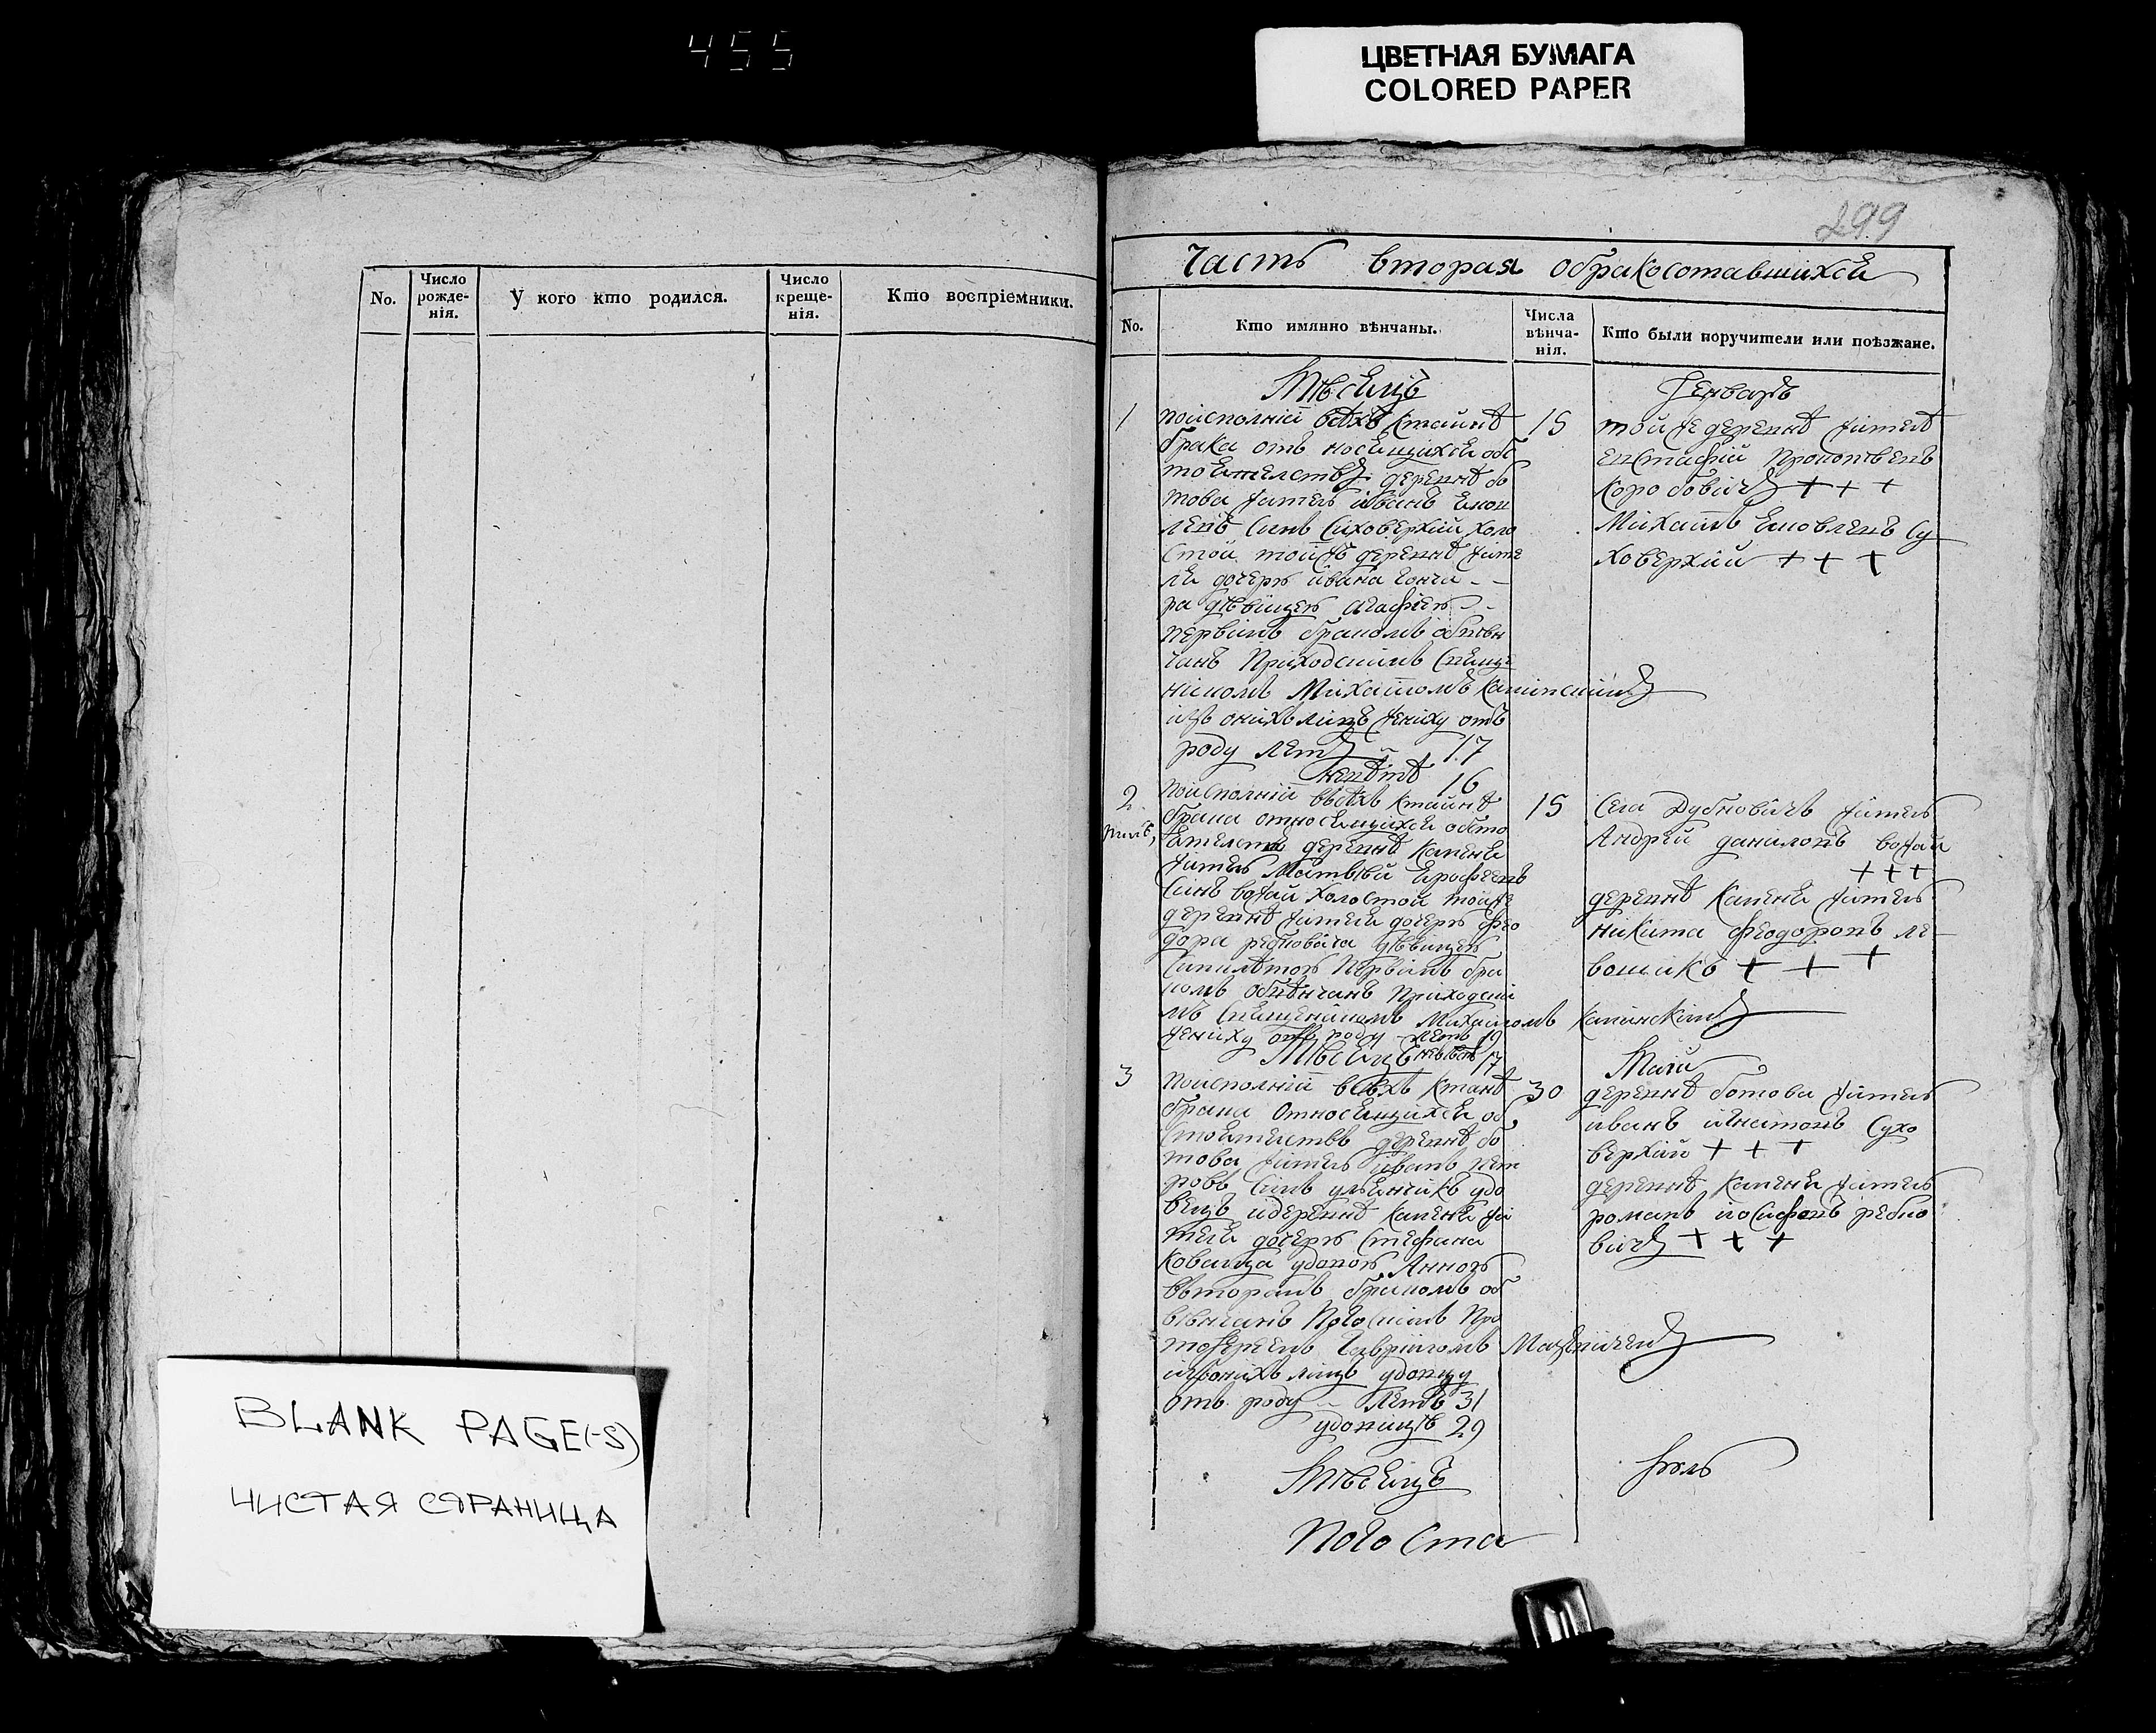 455
ЦВЕТНАЯ БУМАГА
COLORED PAPER
No.
Число рожде-нія.
У кого кто родился.
Число креще-нія.
Кто воспріемники.
BLANK PAGE(-S)
ЧИСТАЯ СТРАНИЦА
299
Часть вторая обракосотавшихся
No.
Кто имянно вѣнчаны.
Числа вѣнча-нія.
Кто были поручители или поѣзжане.
Мѣсяцъ
Генваръ
1
поисполніи всѣхъ ктайнѣ
брака отъ носящихся обс
тоятелствъ деревнѣ бо
това жителъ иванъ
синъ Суховерхий холо
стой тойжъ деревнѣ жите
ля дочеръ ивана гонча - -
ра дѣвицея агафіея - -
первимъ бракомъ обвѣн
чанъ Приходскимъ Свяще
нікомъ Михаиломъ Камінскимъ
изъ онихъ лицъ жениху отъ
роду летъ 17
невѣстѣ 16
15
той же деревнѣ жителѣ
евстафий
коробовичъ + + +
Михаилъ Су
ховерхий + + +
2
поисполніи всѣхъ ктайнѣ
брака относящихся обсто
ятелства деревнѣ Каменя
жителъ Матвѣй
синъ вожай холостой тойже
деревнѣ жителя дочеръ фео
дора дѣвицея
первимъ бра
комъ обвѣнчанъ Приходскі
мъ Священікомъ Михаиломъ Камінскімъ
жениху отъ роду летъ 19
17
15
Села Дубновичъ жителъ
Андрей данилонъ вожай
+ + +
деревнѣ Каменя жителъ
никита феодоровъ ле
вошикъ + + +
Мѣсяцъ
Май
3
поисполніи всѣхъ ктанѣ
брака относящихся об
стоятелствъ деревнѣ бо
това жителъ иванъ пет
ровъ синъ удо
вецъ идеревнѣ каменя жи
теля дочеръ Стефана
удовоя Анноя
вторимъ бракомъ об
вѣнчанъ Погоскимъ Про
тоіереемъ Гавриіломъ
изонихъ лицъ удовцу
отъ роду -- летъ 31
удовицѣ 29
30
деревнѣ ботова жителъ
иванъ игнатовъ Сухо
верхий + + +
деревнѣ каменя жителъ
романъ иосифовъ
+ + +
Мѣсяцъ
Іюль
Погоста